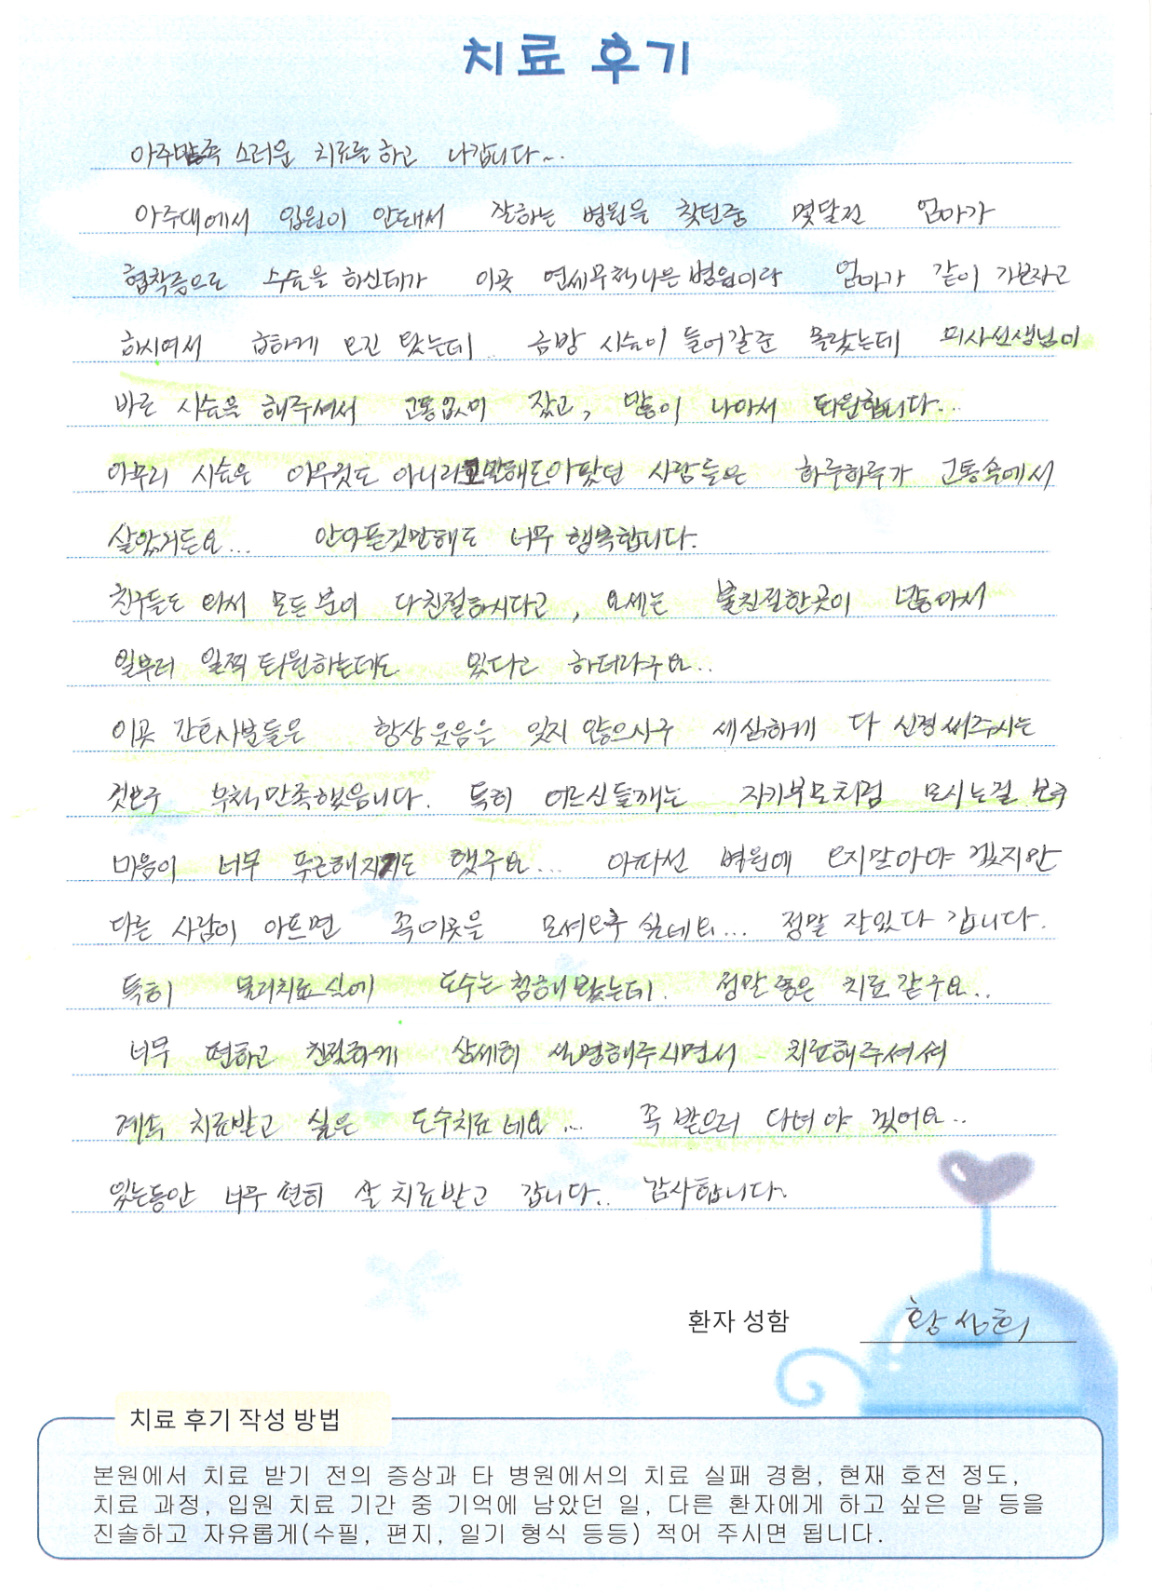 치료 후기
아주만족 스러운 치료를 하고 나갑니다~..
아주대에서 입원이 안돼서 잘하는 병원을 찾던중 몇달전 엄마가
협착증으로 수술을 하신데가 이곳 연세무척나은병원이라 엄마가 같이 가보자고
하시여서 급하게 오긴 왔는데.. 금방 시술이 들어갈줄 몰랐는데 의사선생님이
바로 시술을 해주셔서 고통없이 잤고, 많이 나아서 퇴원합니다...
아무리 시술은 아무것도 아니라고말해도아팠던 사람들은 하루하루가 고통속에서
살았거든요... 안아픈것만해도 너무 행복합니다.
친구들도 와서 모든분이 다친절하시다고, 요세는 불친절한곳이 많아서
일부러 일찍 퇴원하는데도 있다고 하더라구요..
이곳 간호사분들은 항상웃음을 잊지 않으시구 세심하게 다 신경써주시는
것또한 무척만족했습니다. 특히 어르신들께는 자키부모처럼 모시는걸 보구
마음이 너무 푸근해지기도 했구요... 아파선 병원에 오지말아야 겠지만
다른 사람이 아프면 꼭이곳을 모셔오구 싶네요... 정말 잘있다 갑니다.
특히 물리치료실에 도수는 첨해봤는데. 정말 좋은 치료같구요..
너무 편하고 친절하게 상세히 설명해주시면서 치료해주셔서
계속 치료받고 싶은 도수치료네요... 꼭 받으러 다녀야 겠어요..
있는동안 너무 편히 잘 치료받고 갑니다.. 감사합니다.
환자 성함 황상희
치료 후기 작성 방법
본원에서 치료 받기 전의 증상과 타 병원에서의 치료 실패 경험, 현재 호전 정도,
치료 과정, 입원 치료 기간 중 기억에 남았던 일, 다른 환자에게 하고 싶은 말 등을
진솔하고 자유롭게(수필, 편지, 일기 형식 등등) 적어 주시면 됩니다.